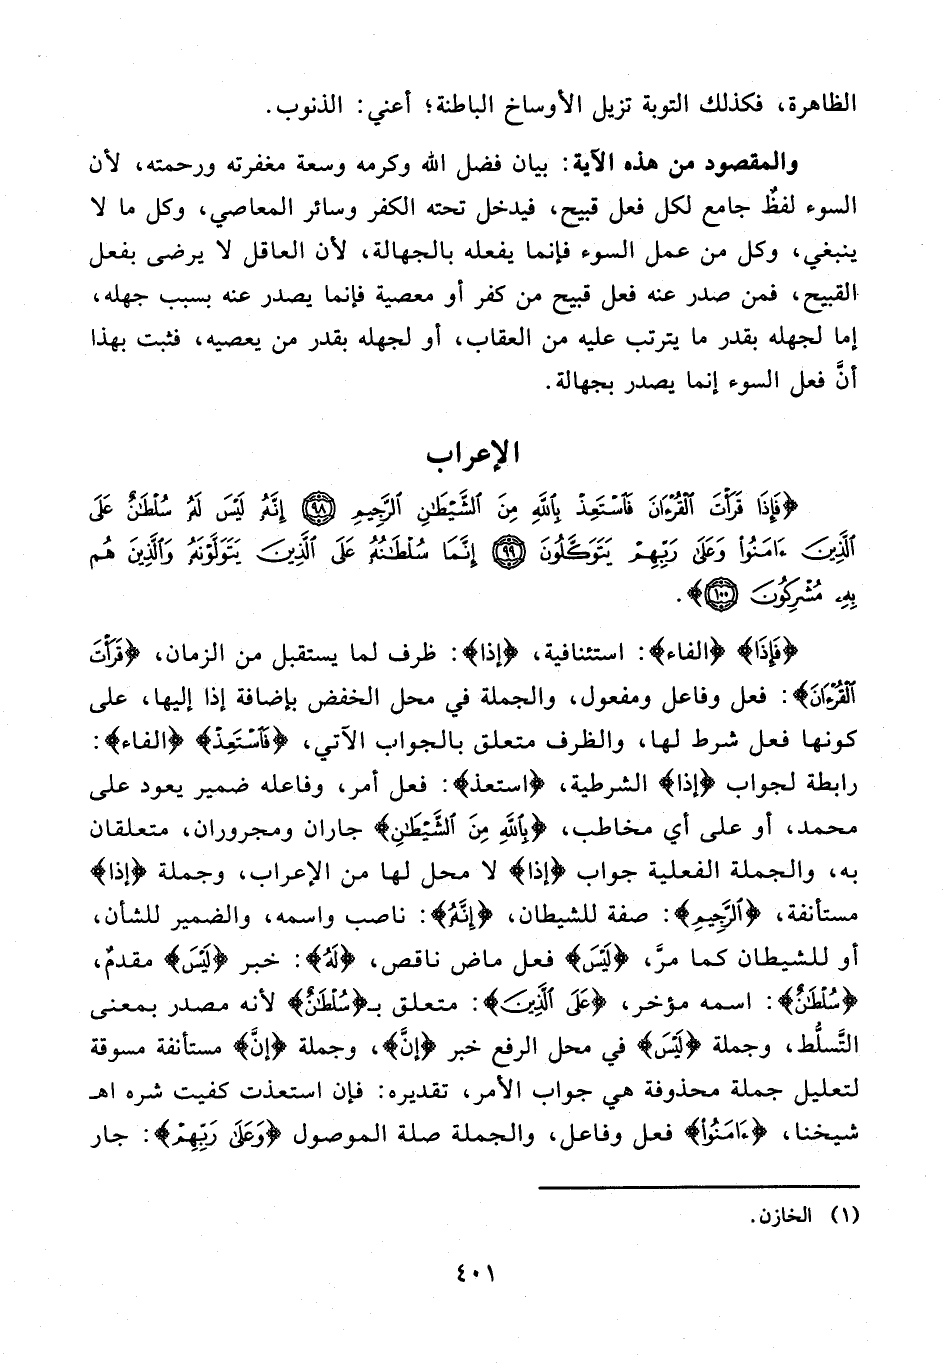 الظاهرة، فكذلك التوبة تزيل الأوساخ الباطنة؛ أعني: الذنوب.
والمقصود من هذه الآية: بيان فضل الله وكرمه وسعة مغفرته ورحمته، لأن
السوء لفظٌ جامع لكل فعل قبيح، فيدخل تحته الكفر وسائر المعاصي، وكل ما لا
ينبغي، وكل من عمل السوء فإنما يفعله بالجهالة، لأن العاقل لا يرضى بفعل
القبيح، فمن صدر عنه فعل قبيح من كفر أو معصية فإنما يصدر عنه بسبب جهله،
إما لجهله بقدر ما يترتب عليه من العقاب، أو لجهله بقدر من يعصيه، فثبت بهذا
أنَّ فعل السوء إنما يصدر بجهالة.
الإعراب
﴿فَإِذَا قَرَأْتَ ٱلْقُرْءَانَ فَٱسْتَعِذْ بِٱللَّهِ مِنَ ٱلشَّيْطَٰنِ ٱلرَّجِيمِ ٩٨ إِنَّهُۥ لَيْسَ لَهُۥ سُلْطَٰنٌ عَلَى
ٱلَّذِينَ ءَامَنُوا۟ وَعَلَىٰ رَبِّهِمْ يَتَوَكَّلُونَ ٩٩ إِنَّمَا سُلْطَٰنُهُۥ عَلَى ٱلَّذِينَ يَتَوَلَّوْنَهُۥ وَٱلَّذِينَ هُم
بِهِۦ مُشْرِكُونَ ١٠٠﴾.
﴿فَإِذَا﴾ ﴿الفاء﴾: استئنافية، ﴿إذا﴾: ظرف لما يستقبل من الزمان، ﴿قَرَأْتَ
ٱلْقُرْءَانَ﴾: فعل وفاعل ومفعول، والجملة في محل الخفض بإضافة إذا إليها، على
كونها فعل شرط لها، والظرف متعلق بالجواب الآتي، ﴿فَٱسْتَعِذْ﴾ ﴿الفاء﴾:
رابطة لجواب ﴿إذا﴾ الشرطية، ﴿استعذ﴾: فعل أمر، وفاعله ضمير يعود على
محمد، أو على أي مخاطب، ﴿بِٱللَّهِ مِنَ ٱلشَّيْطَٰنِ﴾ جاران ومجروران، متعلقان
به، والجملة الفعلية جواب ﴿إذا﴾ لا محل لها من الإعراب، وجملة ﴿إذا﴾
مستأنفة، ﴿ٱلرَّجِيمِ﴾: صفة للشيطان، ﴿إِنَّهُۥ﴾: ناصب واسمه، والضمير للشأن،
أو للشيطان كما مرَّ، ﴿لَيْسَ﴾ فعل ماض ناقص، ﴿لَهُۥ﴾: خبر ﴿لَيْسَ﴾ مقدمٌ،
﴿سُلْطَٰنٌ﴾: اسمه مؤخر، ﴿عَلَى ٱلَّذِينَ﴾: متعلق بـ﴿سُلْطَٰنٌ﴾ لأنه مصدر بمعنى
التَّسلُّط، وجملة ﴿لَيْسَ﴾ في محل الرفع خبر ﴿إنَّ﴾، وجملة ﴿إنَّ﴾ مستأنفة مسوقة
لتعليل جملة محذوفة هي جواب الأمر، تقديره: فإن استعذت كفيت شره اهـ
شيخنا، ﴿ءَامَنُوا۟﴾ فعل وفاعل، والجملة صلة الموصول ﴿وَعَلَىٰ رَبِّهِمْ﴾: جار
(١) الخازن.
٤٠١